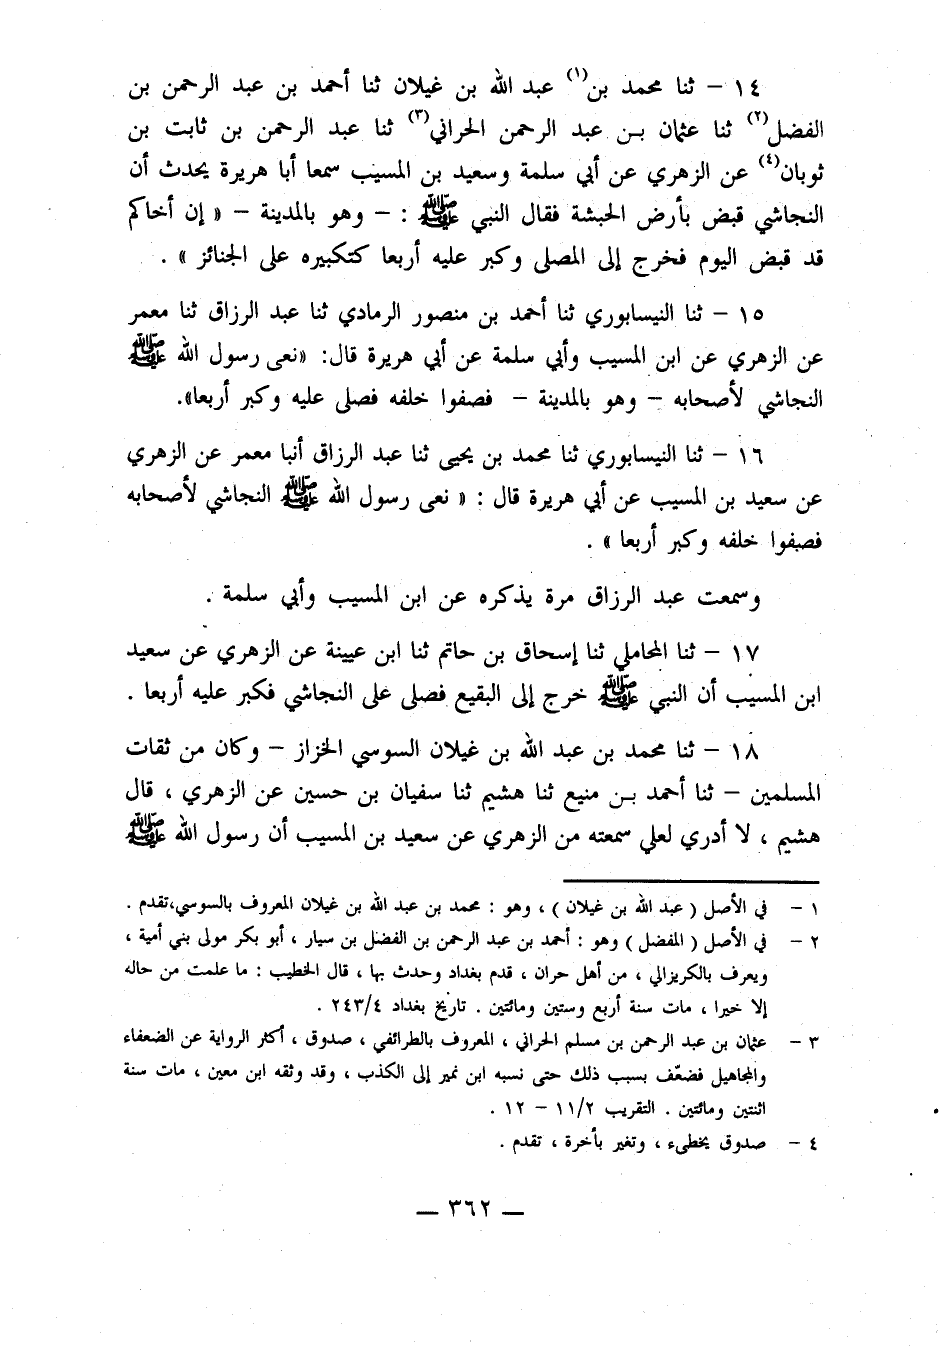 ١٤ – ثنا محمد بن(١) عبد الله بن غيلان ثنا أحمد بن عبد الرحمن بن
الفضل(٢) ثنا عثمان بن عبد الرحمن الحراني(٣) ثنا عبد الرحمن بن ثابت بن
ثوبان(٤) عن الزهري عن أبي سلمة وسعيد بن المسيب سمعا أبا هريرة يحدث أن
النجاشي قبض بأرض الحبشة فقال النبي ﷺ : – وهو بالمدينة – « إن أخاكم
قد قبض اليوم فخرج إلى المصلى وكبر عليه أربعا كتكبيره على الجنائز » .
١٥ – ثنا النيسابوري ثنا أحمد بن منصور الرمادي ثنا عبد الرزاق ثنا معمر
عن الزهري عن ابن المسيب وأبي سلمة عن أبي هريرة قال: «نعى رسول الله ﷺ
النجاشي لأصحابه – وهو بالمدينة – فصفوا خلفه فصلى عليه وكبر أربعا».
١٦ – ثنا النيسابوري ثنا محمد بن يحيى ثنا عبد الرزاق أنبا معمر عن الزهري
عن سعيد بن المسيب عن أبي هريرة قال : « نعى رسول الله ﷺ النجاشي لأصحابه
فصفوا خلفه وكبر أربعا » .
وسمعت عبد الرزاق مرة يذكره عن ابن المسيب وأبي سلمة .
١٧ – ثنا المحاملي ثنا إسحاق بن حاتم ثنا ابن عيينة عن الزهري عن سعيد
ابن المسيب أن النبي ﷺ خرج إلى البقيع فصلى على النجاشي فكبر عليه أربعا .
١٨ – ثنا محمد بن عبد الله بن غيلان السوسي الخزاز – وكان من ثقات
المسلمين – ثنا أحمد بن منيع ثنا هشيم ثنا سفيان بن حسين عن الزهري ، قال
هشيم ، لا أدري لعلي سمعته من الزهري عن سعيد بن المسيب أن رسول الله ﷺ
١ – في الأصل ( عبد الله بن غيلان ) ، وهو : محمد بن عبد الله بن غيلان المعروف بالسوسي،تقدم .
٢ – في الأصل ( المفضل ) وهو : أحمد بن عبد الرحمن بن الفضل بن سيار ، أبو بكر مولى بني أمية ،
ويعرف بالكريزالي ، من أهل حران ، قدم بغداد وحدث بها ، قال الخطيب : ما علمت من حاله
إلا خيرا ، مات سنة أربع وستين ومائتين . تاريخ بغداد ٢٤٣/٤ .
٣ – عثمان بن عبد الرحمن بن مسلم الحراني ، المعروف بالطرائفي ، صدوق ، أكثر الرواية عن الضعفاء
والمجاهيل فضعّف بسبب ذلك حتى نسبه ابن نمير إلى الكذب ، وقد وثقه ابن معين ، مات سنة
اثنتين ومائتين . التقريب ١١/٢ – ١٢ .
٤ – صدوق يخطيء ، وتغير بأخرة ، تقدم .
— ٣٦٢ —